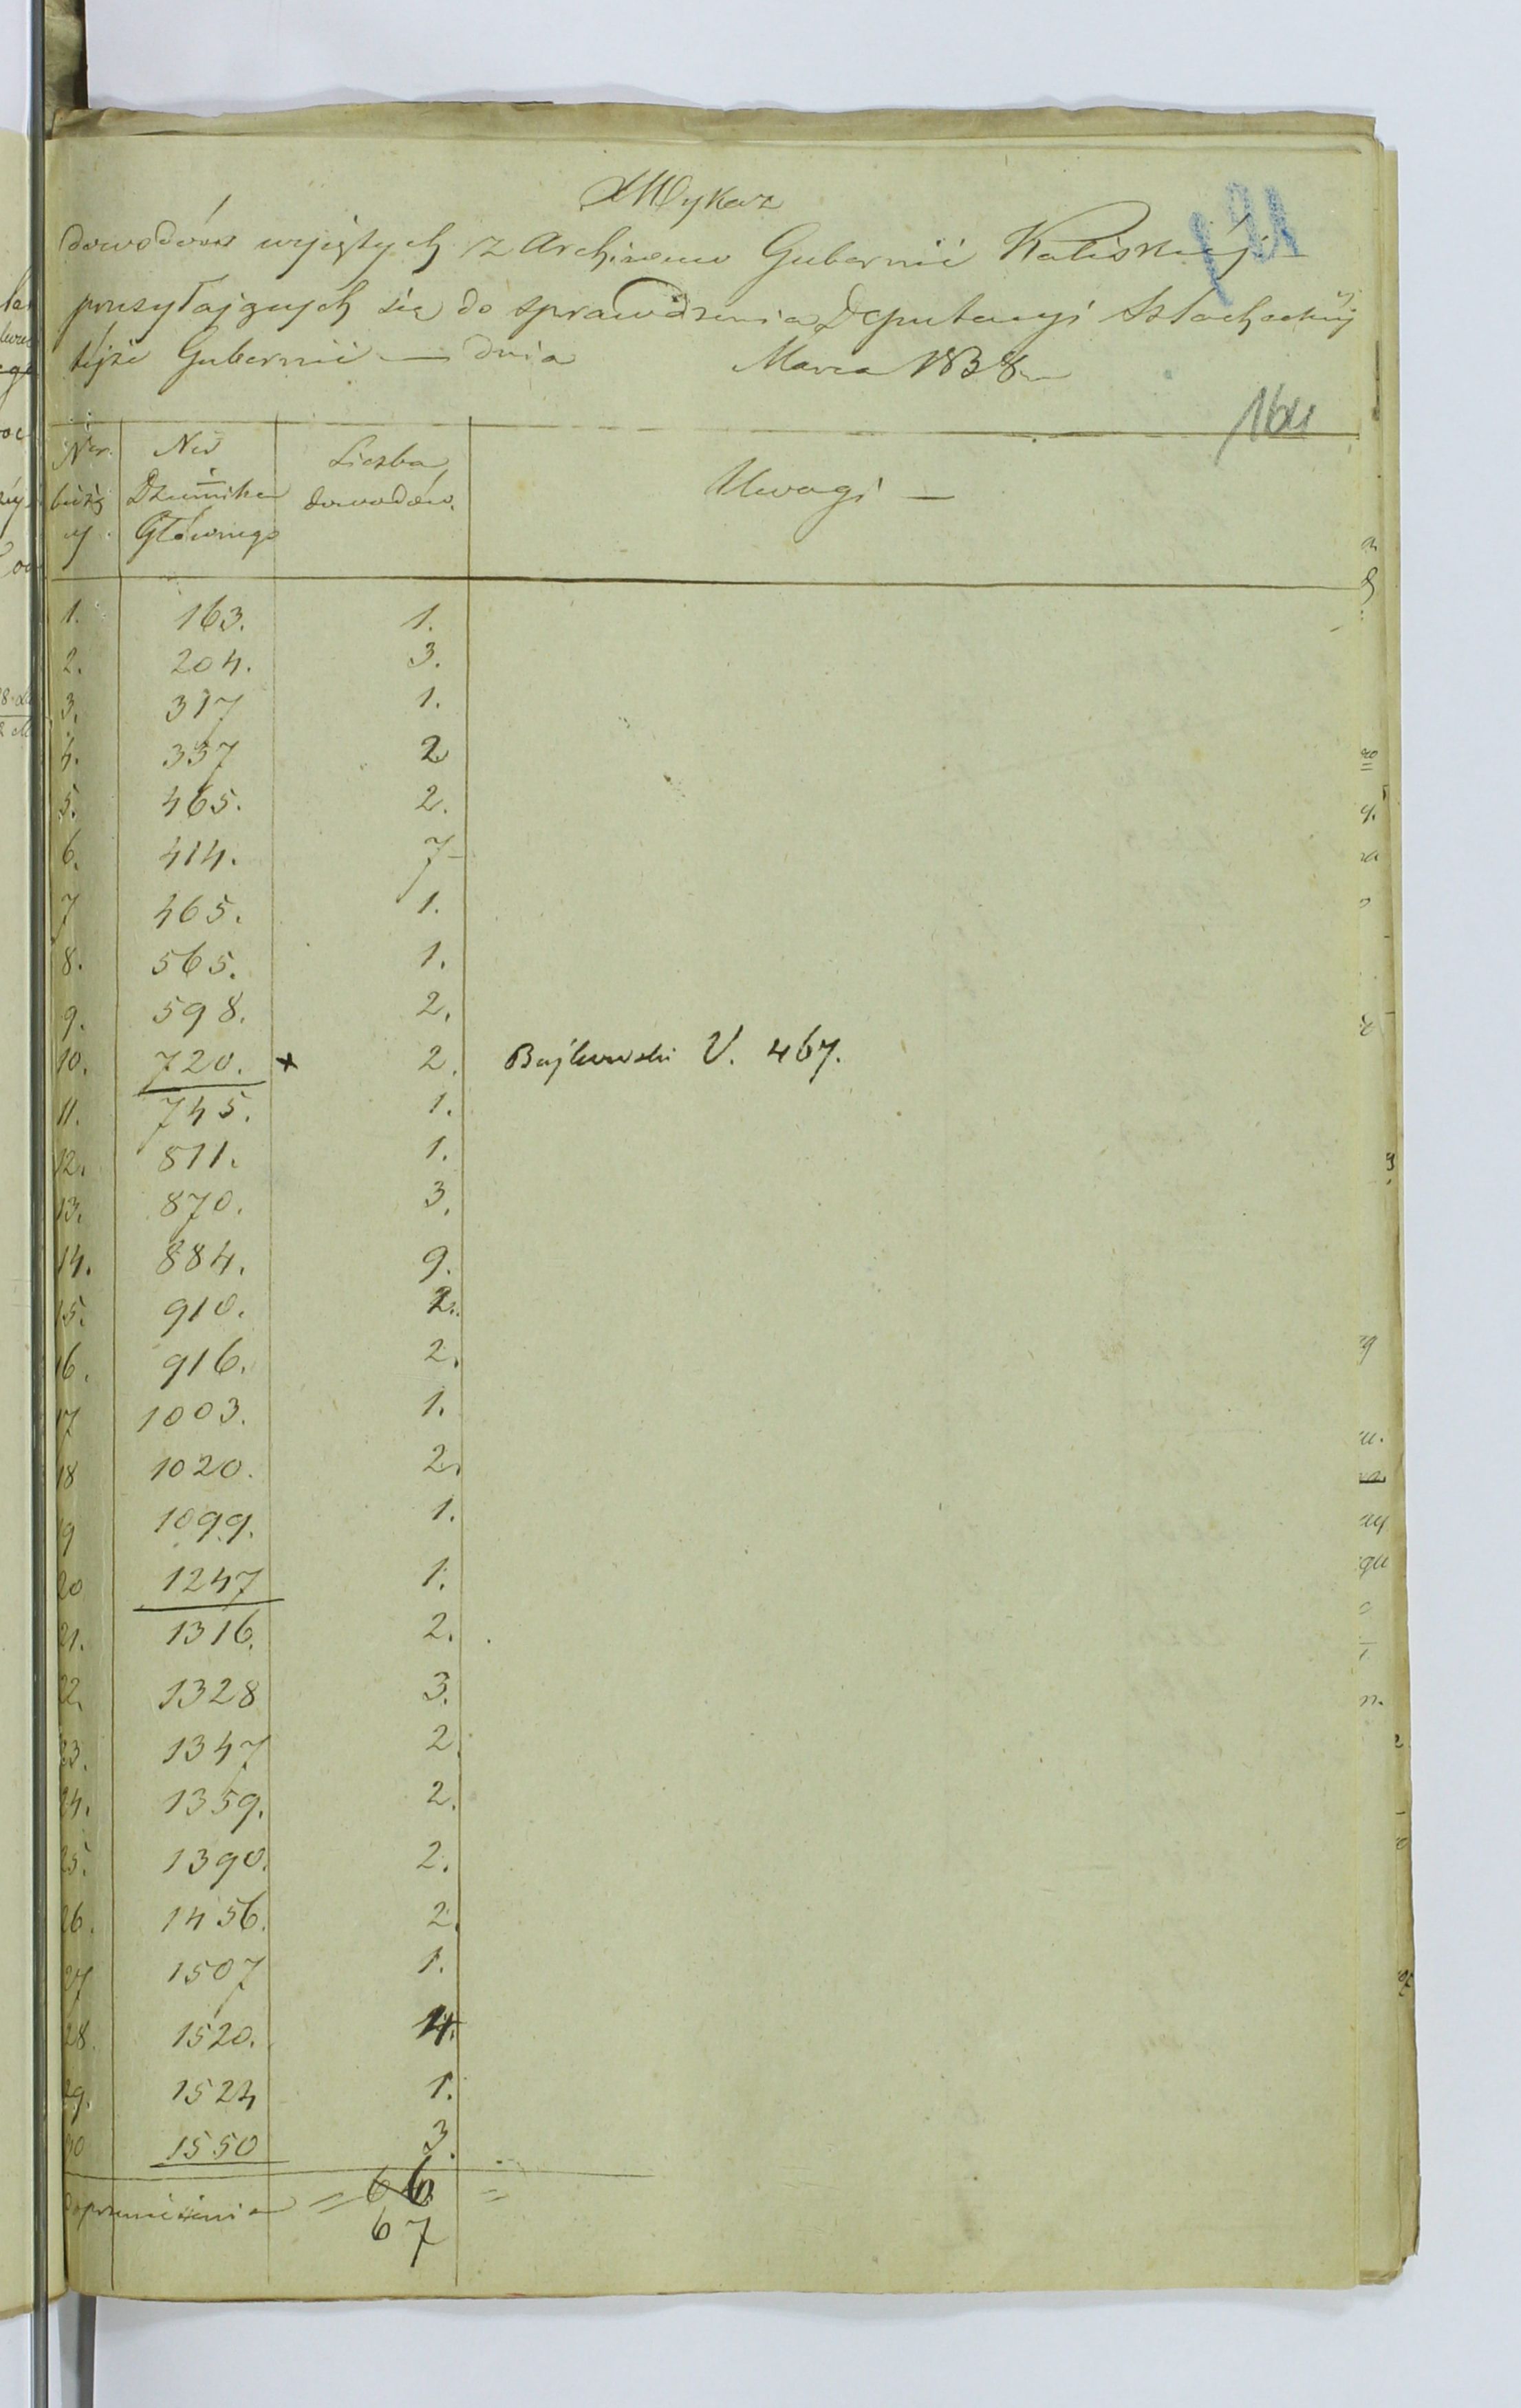 Wykaz
dowodów wyjętych z Archiwum Gubernii Kaliskiéj
przesyłających się do sprawdzenia Deputacyi Szlacheckiéj
tejże Gubernii — dnia Marca 1838
164
Ner. bieżący
Ner Dziennika Głównego
Liczba dowodów.
Uwagi —
1. 163. 1.
2. 204. 3.
3. 317 1.
4. 337 2
5. 465. 2.
6. 414. 7
7 465. 1.
8. 565. 1.
9. 598. 2.
10. 720. × 2. Bajkowski V. 467.
11. 745. 1.
12. 811. 1.
13. 870. 3.
14. 884. 9.
15. 910. 2.
16. 916. 2.
17 1003. 1.
18 1020. 2.
19 1099. 1.
20 1247 1.
21. 1316. 2.
22. 1328 3.
23. 1347 2.
24. 1359. 2.
25. 1390. 2.
26. 1456. 2.
27 1507 1.
28. 1520. 4.
29. 1524 1.
30 1550 3.
do przeniesienia = 66 =
67